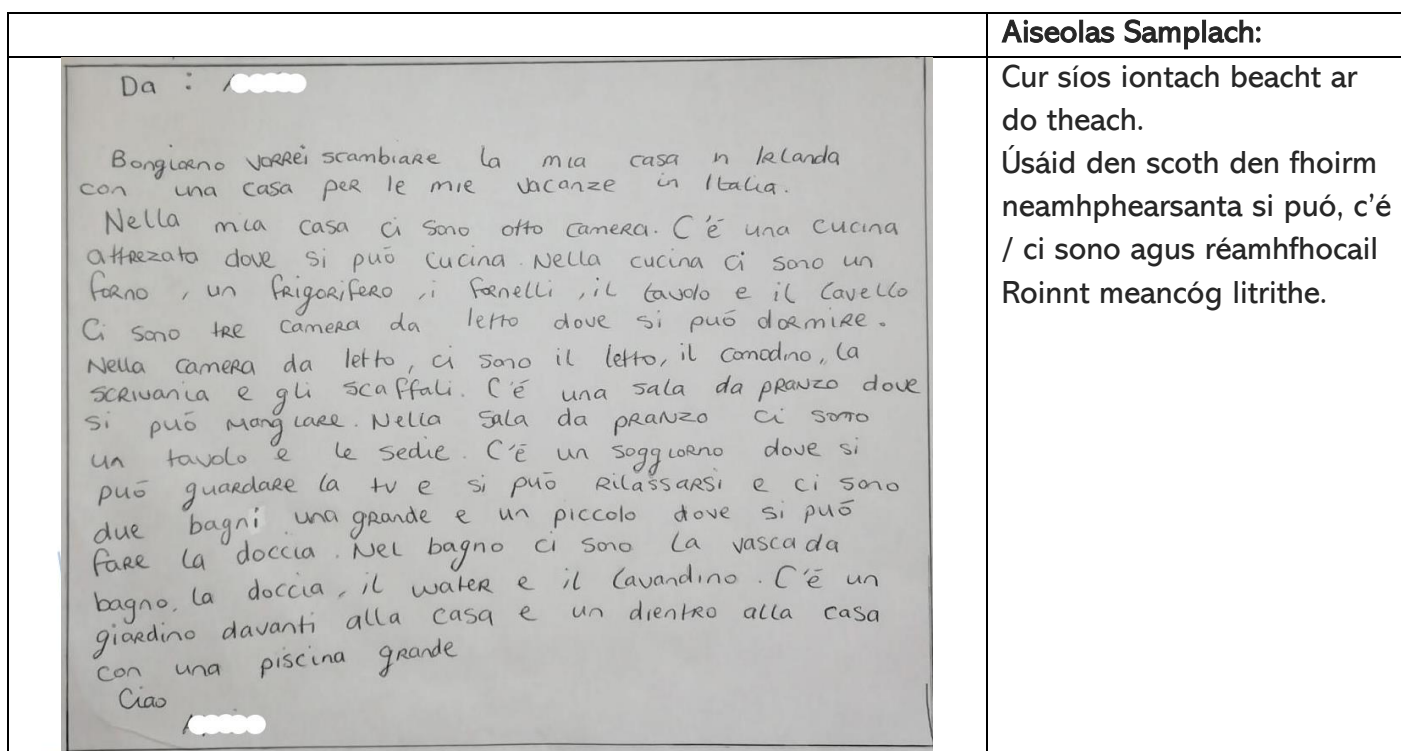 Aiseolas Samplach:
Da :
Bongiorno vorrei scambiare la mia casa n Irlanda
con una casa per le mie vacanze in Italia.
Nella mia casa ci sono otto camera. C'é una cucina
attrezata dove si puó cucina. Nella cucina ci sono un
forno, un frigorifero, i fornelli, il tavolo e il lavello
Ci sono tre camera da letto dove si puó dormire.
Nella camera da letto, ci sono il letto, il comodino, la
scrivania e gli scaffali. C'é una sala da pranzo dove
si puó mangiare. Nella sala da pranzo ci sono
un tavolo e le sedie. C'é un soggiorno dove si
puó guardare la tv e si puó rilassarsi e ci sono
due bagni una grande e un piccolo dove si puó
fare la doccia. Nel bagno ci sono la vasca da
bagno, la doccia, il water e il lavandino. C'é un
giardino davanti alla casa e un dientro alla casa
con una piscina grande
Ciao
Cur síos iontach beacht ar
do theach.
Úsáid den scoth den fhoirm
neamhphearsanta si puó, c'é
/ ci sono agus réamhfhocail
Roinnt meancóg litrithe.